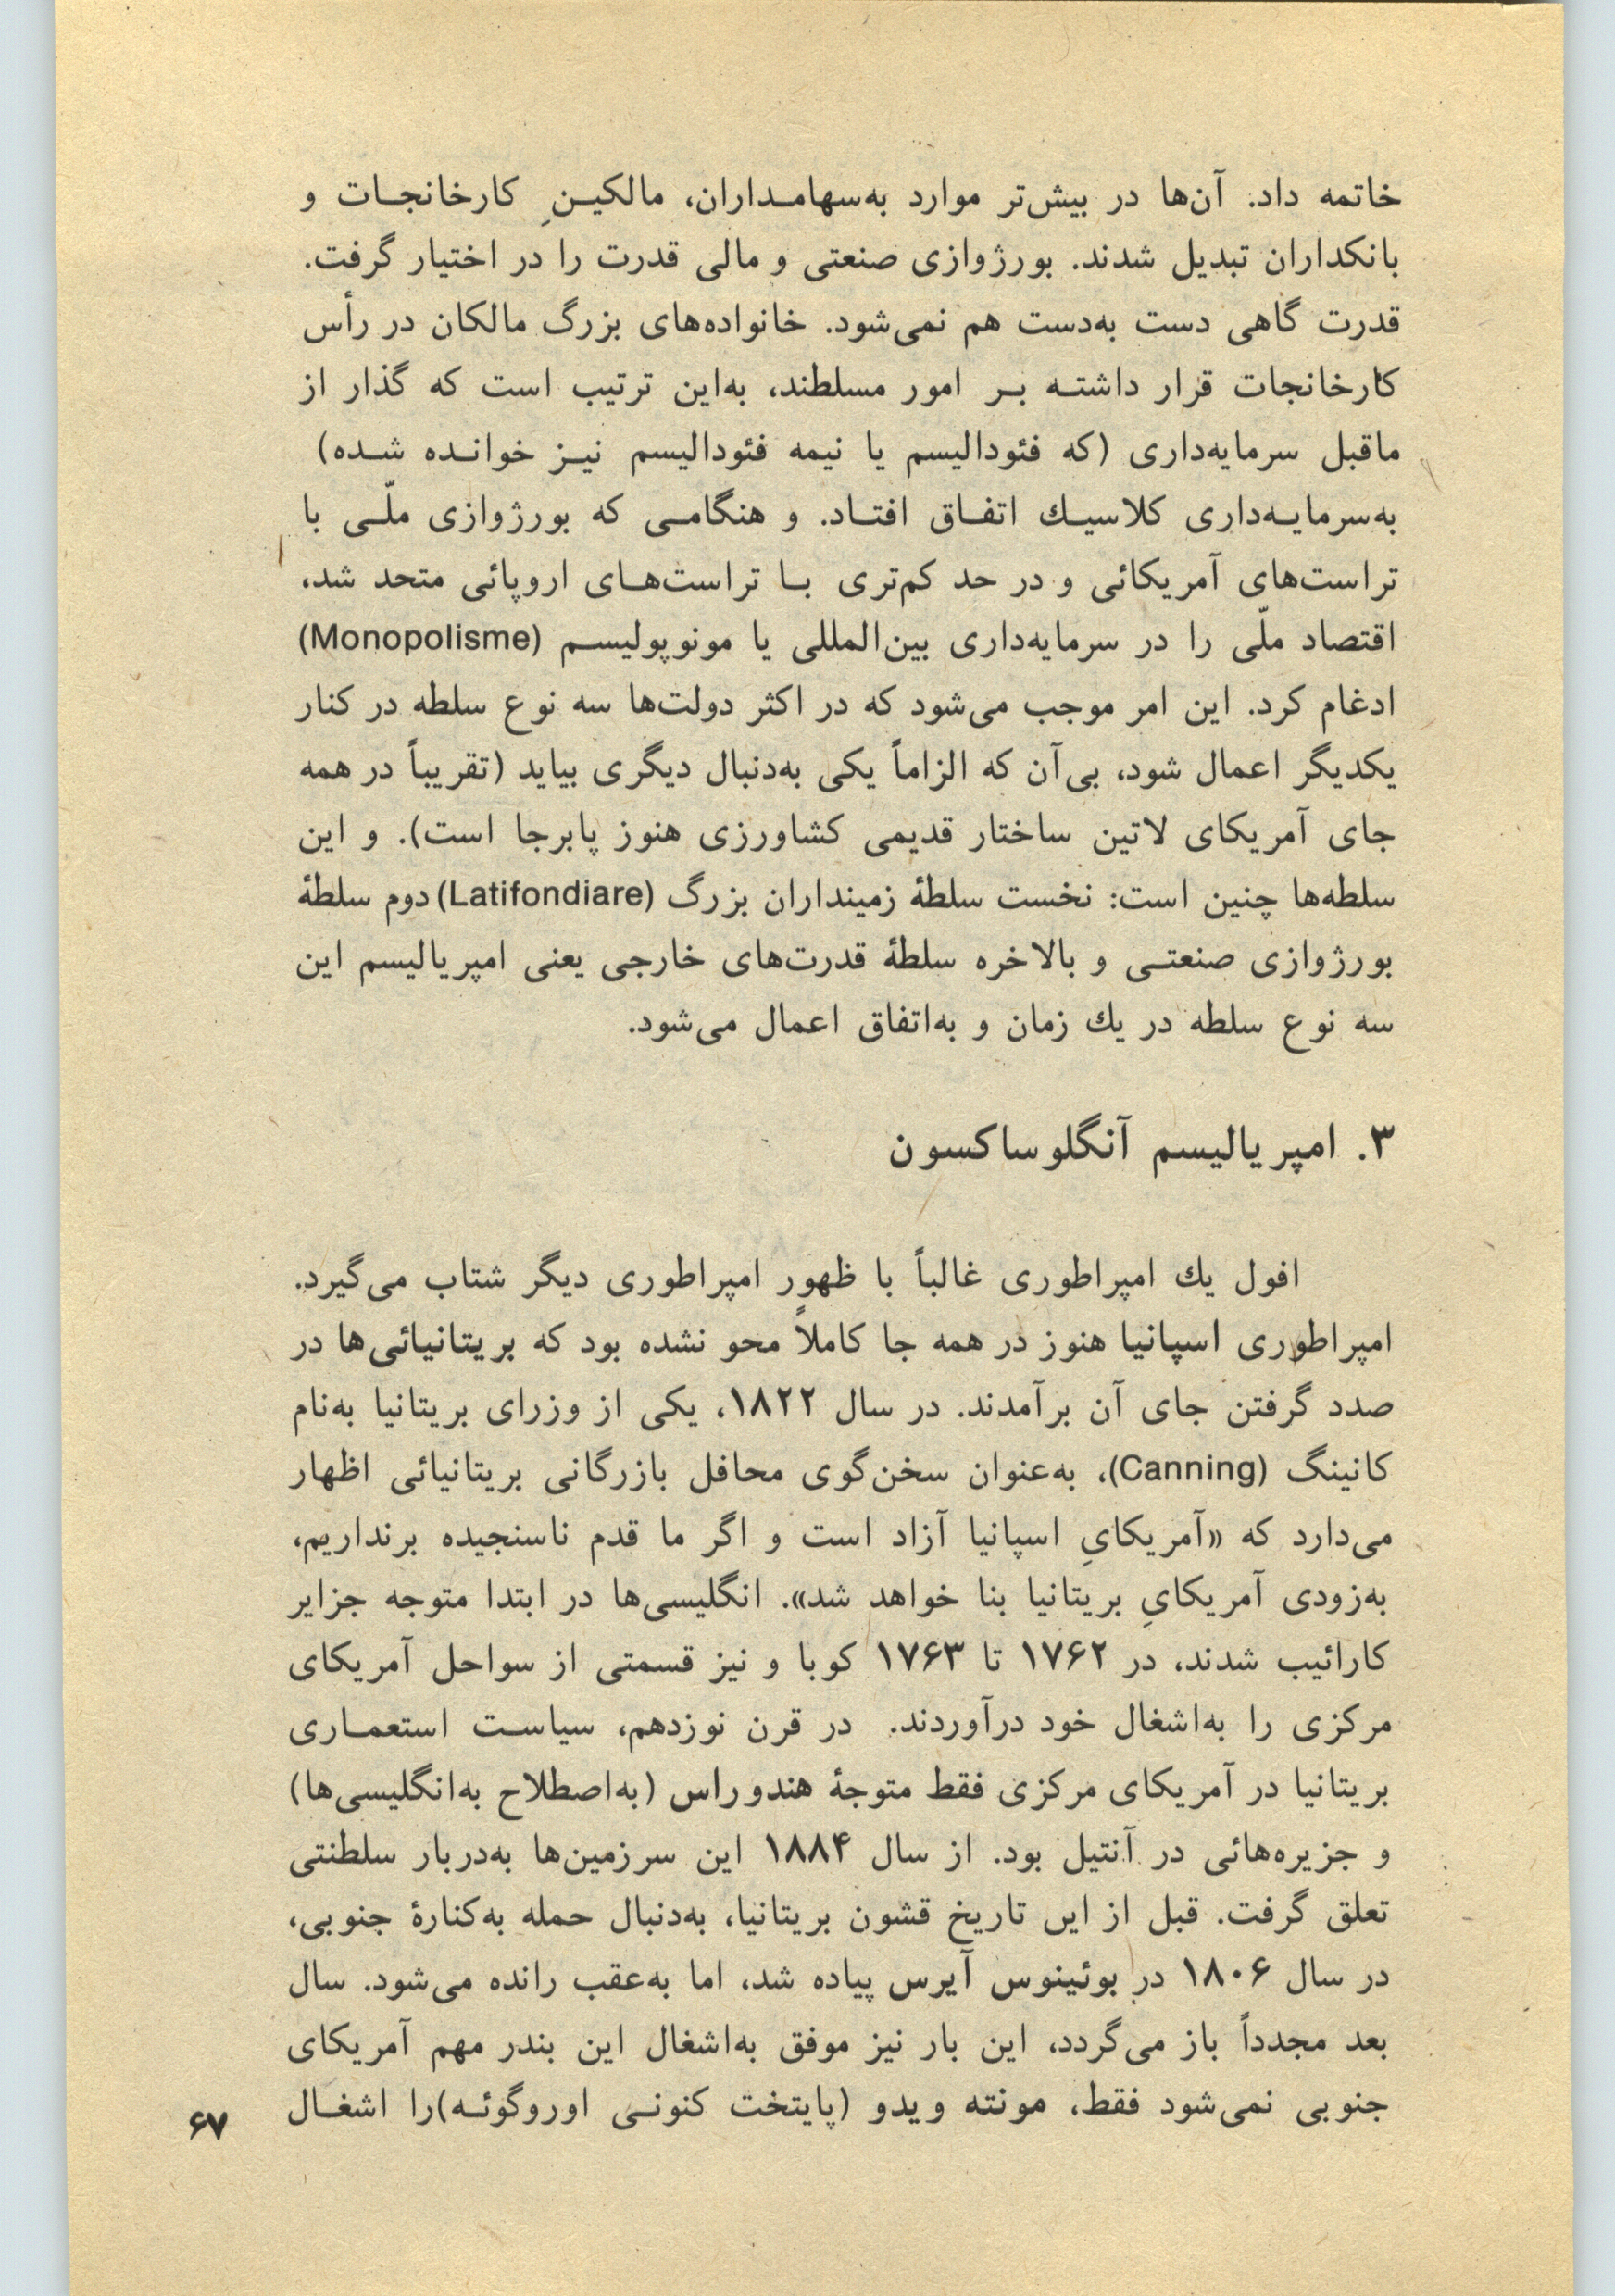 خاتمه داد. آن‌ها در بیش‌تر موارد به‌سهامداران، مالکینِ کارخانجات و
بانکداران تبدیل شدند. بورژوازی صنعتی و مالی قدرت را در اختیار گرفت.
قدرت گاهی دست به‌دست هم نمی‌شود. خانواده‌های بزرگ مالکان در رأس
کارخانجات قرار داشته بر امور مسلطند، به‌این ترتیب است که گذار از
ماقبل سرمایه‌داری (که فئودالیسم یا نیمه فئودالیسم نیز خوانده شده)
به‌سرمایه‌داری کلاسیك اتفاق افتاد. و هنگامی که بورژوازی ملّی با
تراست‌های آمریکائی و در حد کم‌تری با تراست‌های اروپائی متحد شد،
اقتصاد ملّی را در سرمایه‌داری بین‌المللی یا مونوپولیسم (Monopolisme)
ادغام کرد. این امر موجب می‌شود که در اکثر دولت‌ها سه نوع سلطه در کنار
یکدیگر اعمال شود، بی‌آن که الزاماً یکی به‌دنبال دیگری بیاید (تقریباً در همه
جای آمریکای لاتین ساختار قدیمی کشاورزی هنوز پابرجا است). و این
سلطه‌ها چنین است: نخست سلطهٔ زمینداران بزرگ (Latifondiare) دوم سلطهٔ
بورژوازی صنعتی و بالاخره سلطهٔ قدرت‌های خارجی یعنی امپریالیسم این
سه نوع سلطه در یك زمان و به‌اتفاق اعمال می‌شود.
۳. امپریالیسم آنگلوساکسون
افول یك امپراطوری غالباً با ظهور امپراطوری دیگر شتاب می‌گیرد.
امپراطوری اسپانیا هنوز در همه جا کاملاً محو نشده بود که بریتانیائی‌ها در
صدد گرفتن جای آن برآمدند. در سال ۱۸۲۲، یکی از وزرای بریتانیا به‌نام
کانینگ (Canning)، به‌عنوان سخن‌گوی محافل بازرگانی بریتانیائی اظهار
می‌دارد که «آمریکایِ اسپانیا آزاد است و اگر ما قدم ناسنجیده برنداریم،
به‌زودی آمریکایِ بریتانیا بنا خواهد شد». انگلیسی‌ها در ابتدا متوجه جزایر
کارائیب شدند، در ۱۷۶۲ تا ۱۷۶۳ کوبا و نیز قسمتی از سواحل آمریکای
مرکزی را به‌اشغال خود درآوردند. در قرن نوزدهم، سیاست استعماری
بریتانیا در آمریکای مرکزی فقط متوجهٔ هندوراس (به‌اصطلاح به‌انگلیسی‌ها)
و جزیره‌هائی در آنتیل بود. از سال ۱۸۸۴ این سرزمین‌ها به‌دربار سلطنتی
تعلق گرفت. قبل از این تاریخ قشون بریتانیا، به‌دنبال حمله به‌کنارهٔ جنوبی،
در سال ۱۸۰۶ در بوئینوس آیرس پیاده شد، اما به‌عقب رانده می‌شود. سال
بعد مجدداً باز می‌گردد، این بار نیز موفق به‌اشغال این بندر مهم آمریکای
جنوبی نمی‌شود فقط، مونته ویدو (پایتخت کنونی اوروگوئه) را اشغال
۶۷